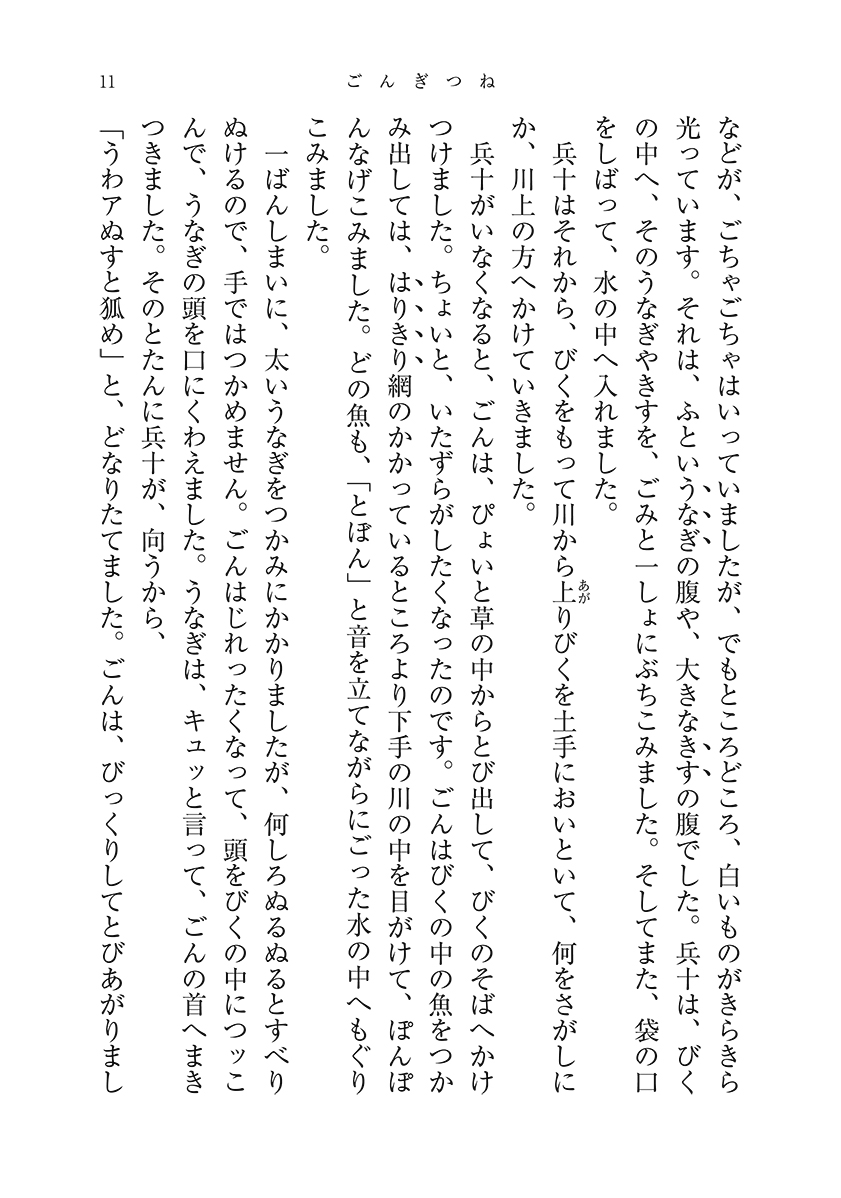 11
ごんぎつね
などが、ごちゃごちゃはいっていましたが、でもところどころ、白いものがきらきら
光っています。それは、ふというなぎの腹や、大きなきすの腹でした。兵十は、びく
の中へ、そのうなぎやきすを、ごみと一しょにぶちこみました。そしてまた、袋の口
をしばって、水の中へ入れました。
兵十はそれから、びくをもって川から上りびくを土手においといて、何をさがしに
あが
か、川上の方へかけていきました。
兵十がいなくなると、ごんは、ぴょいと草の中からとび出して、びくのそばへかけ
つけました。ちょいと、いたずらがしたくなったのです。ごんはびくの中の魚をつか
み出しては、はりきり網のかかっているところより下手の川の中を目がけて、ぽんぽ
んなげこみました。どの魚も、「とぼん」と音を立てながらにごった水の中へもぐり
こみました。
一ばんしまいに、太いうなぎをつかみにかかりましたが、何しろぬるぬるとすべり
ぬけるので、手ではつかめません。ごんはじれったくなって、頭をびくの中につッこ
んで、うなぎの頭を口にくわえました。うなぎは、キュッと言って、ごんの首へまき
つきました。そのとたんに兵十が、向うから、
「うわアぬすと狐め」と、どなりたてました。ごんは、びっくりしてとびあがりまし